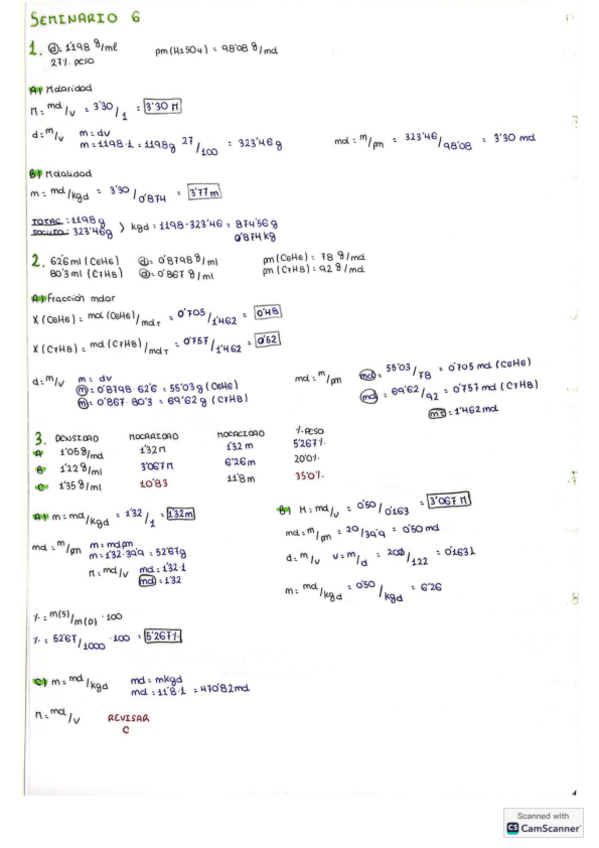 SEMINARIO 6
1. d= 1'198 g/ml pm(H2SO4) = 98'08 g/mol
27% peso
A) Molaridad
M = mol/V = 3'30/1 = 3'30 M
d = m/V m = dV
m = 1198·1 = 1198g 27/100 = 323'46g mol = m/pm = 323'46/98'08 = 3'30 mol
B) Molalidad
m = mol/kgd = 3'30/0'874 = 3'77m
TOTAL: 1198g
SOLUTO: 323'46g > kgd = 1198-323'46 = 874'56g
0'874kg
2. 62'6 ml (C6H6) d= 0'8798 g/ml pm(C6H6) = 78 g/mol
80'3 ml (C7H8) d= 0'867 g/ml pm(C7H8) = 92 g/mol
A) Fracción molar
X (C6H6) = mol (C6H6)/molT = 0'705/1'462 = 0'48
X (C7H8) = mol (C7H8)/molT = 0'757/1'462 = 0'52
d = m/V m = dV mol = m/pm mol = 55'03/78 = 0'705 mol (C6H6)
m = 0'8798·62'6 = 55'03g (C6H6) mol = 69'62/92 = 0'757 mol (C7H8)
m = 0'867·80'3 = 69'62g (C7H8) mT = 1'462 mol
3. DENSIDAD MOLARIDAD MOLALIDAD %PESO
A 1'32M 1'32m 5'267%
B 1'22 g/ml 3'067M 6'26m 20'0%
C 1'35 g/ml 10'83 11'8m 35'0%
A) m = mol/kgd = 1'32/1 = 1'32m
mol = m/pm m = mol pm
m = 1'32·39'9 = 52'67g
M = mol/V mol = 1'32·1
mol = 1'32
% = m(s)/m(D) ·100
% = 52'67/1000 ·100 = 5'267%
B) M = mol/V = 0'50/0'163 = 3'067 M
mol = m/pm = 20/39'9 = 0'50 mol
d = m/V V = m/d = /122 = 0'163L
m = mol/kgd = 0'50/kgd = 6'26
C) m = mol/kgd mol = mkgd
mol = 11'8·1 = 470'82mol
M = mol/V REVISAR
C
Scanned with
CS CamScanner